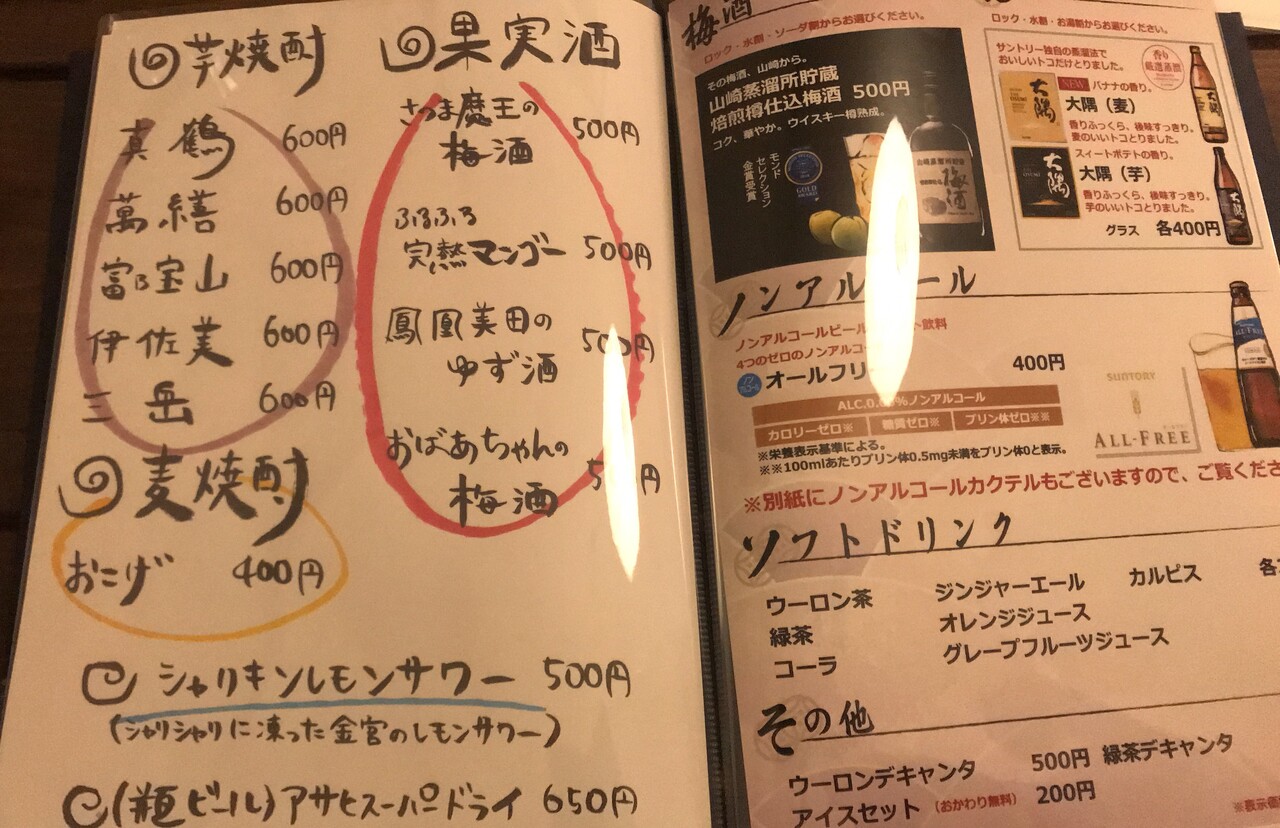 芋焼酎
真鶴 600円
萬膳 600円
富乃宝山 600円
伊佐美 600円
三岳 600円
麦焼酎
おこげ 400円
果実酒
さつま魔王の
梅酒 500円
ふるふる
完熟マンゴー 500円
鳳凰美田の
ゆず酒 500円
おばあちゃんの
梅酒 5 円
シャリキンレモンサワー 500円
(シャリシャリに凍った金宮のレモンサワー)
(瓶ビール)アサヒスーパードライ 650円
梅酒
ロック・水割・ソーダ割からお選びください。
その梅酒、山崎から。
山崎蒸溜所貯蔵
焙煎樽仕込梅酒 500円
コク、華やか。ウイスキー樽熟成。
モンド
セレクション
金賞受賞
GOLD AWARD
山崎蒸溜所貯蔵
梅酒
ロック・水割・お湯割からお選びください。
サントリー独自の蒸溜法で
おいしいトコだけとりました。
香り
厳選蒸溜
NEW バナナの香り。
大隅(麦)
香りふっくら、後味すっきり。
麦のいいトコとりました。
大隅
スイートポテトの香り。
大隅(芋)
香りふっくら、後味すっきり。
芋のいいトコとりました。
大隅
グラス 各400円
ノンアルコール
ノンアルコールビール ト飲料
4つのゼロのノンアルコ
ノンアルコール オールフリー 400円
ALC.0.00%ノンアルコール
カロリーゼロ※ 糖質ゼロ※ プリン体ゼロ※※
※栄養表示基準による。
※※100mlあたりプリン体0.5mg未満をプリン体0と表示。
SUNTORY
ALL-FREE
ALL-FREE
※別紙にノンアルコールカクテルもございますので、ご覧くださ
ソフトドリンク
ウーロン茶 ジンジャーエール カルピス 各
緑茶 オレンジジュース
コーラ グレープフルーツジュース
その他
ウーロンデキャンタ 500円 緑茶デキャンタ
アイスセット (おかわり無料) 200円
※表示価